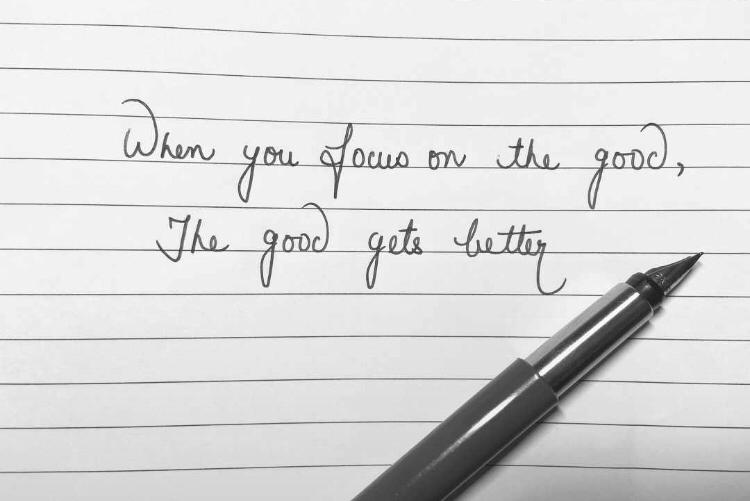 When you focus on the good,
The good gets better